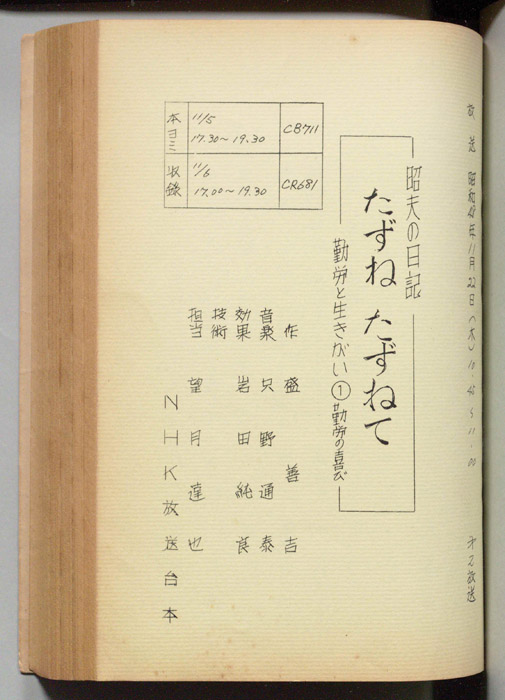 放送 昭和48年11月22日(木)10.45〜11.00 オ2放送
昭夫の日記
たずね たずねて
勤労と生きがい①勤労の喜び
本ヨミ 11/5 17.30〜19.30 CB711
収録 11/6 17.00〜19.30 CR681
作 盛 善吉
音楽 只野通泰
効果 岩田純良
技術
担当 望月達也
NHK放送台本